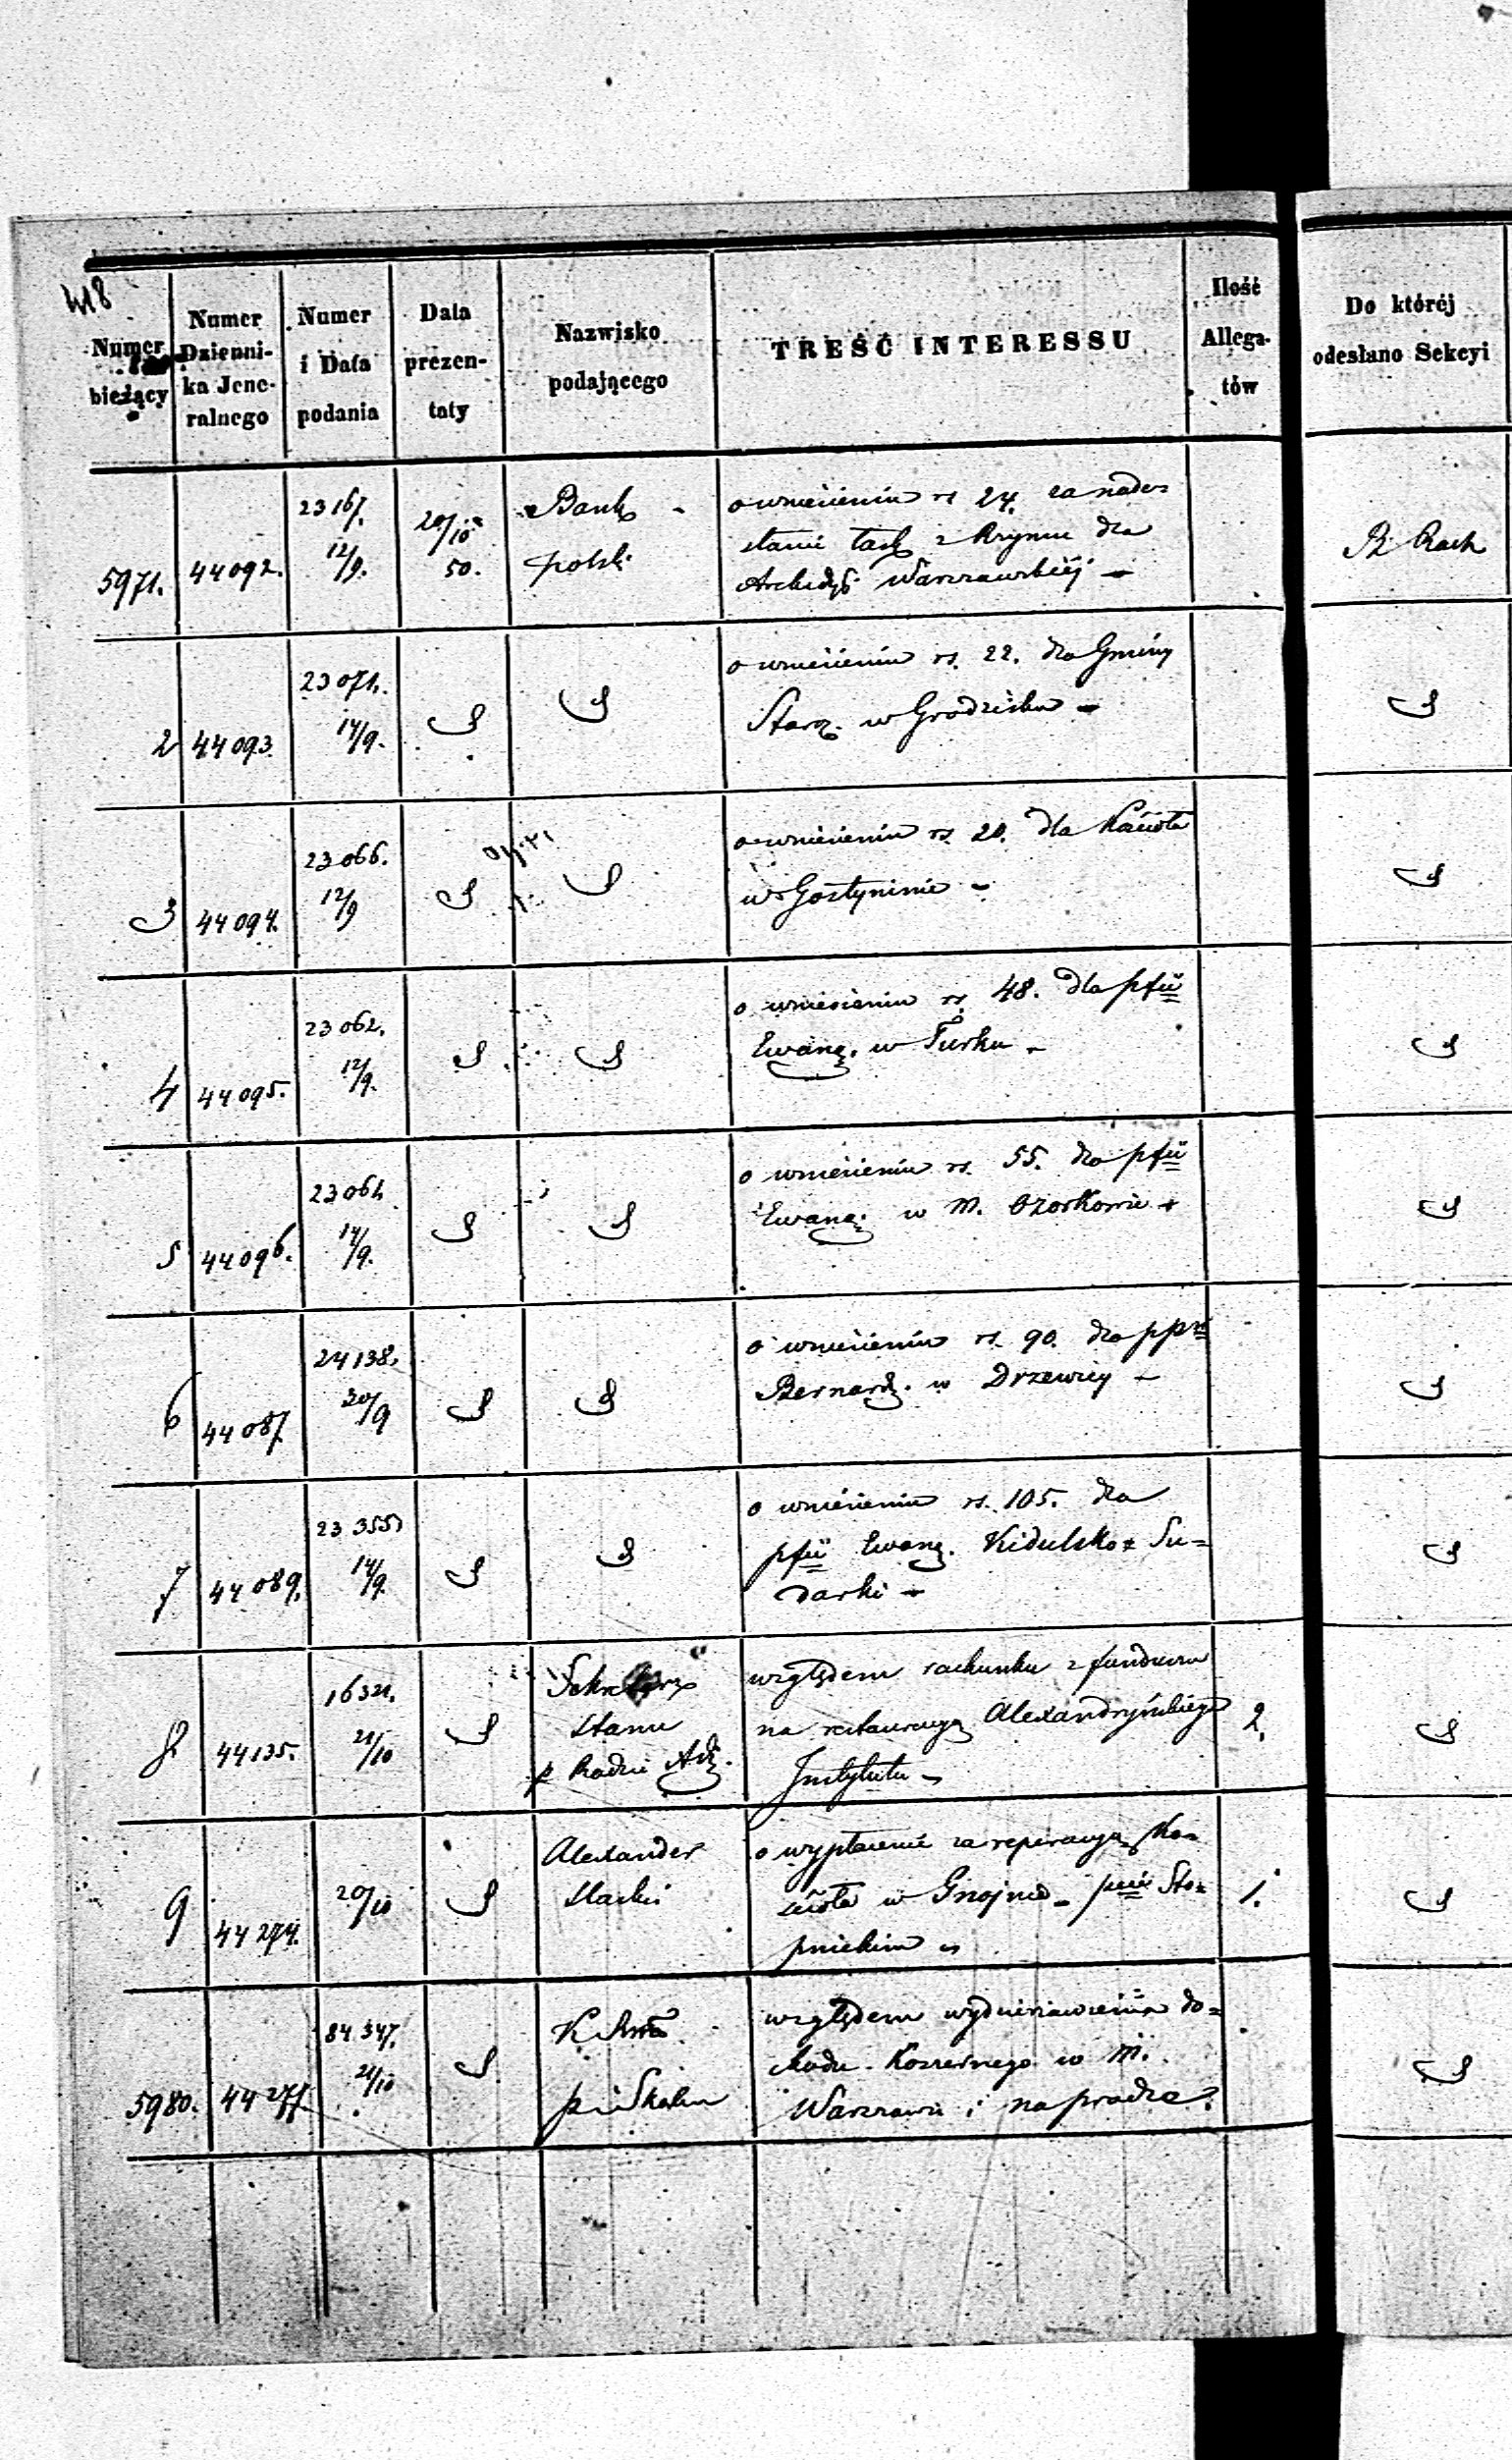 418
Numer bieżący
Numer Dzienni-ka Jene-ralnego
Numer i Data podania
Data prezen-taty
Nazwisko podającego
TREŚĆ INTERESSU
Ilość Allega-tów
Do któréj odesłano Sekcyi
5971. 44092. 23167. 12/9. 20/10 50. Bank polski
o wniesieniu rs 24. za nade=
słanie z Rzymu dla
Warszawskiéj –
Rach
2 44093. 23071. 14/9.
o wniesieniu rs. 22. dla Gminy
Staroz. w Grodzisku –
3 44094. 23066. 12/9
o wniesieniu rs. 20. dla Kościoła
w Gostyninie –
4 44095. 23062. 12/9.
o wniesieniu rs 48. dla pfii
Ewang. w Turku –
5 44096. 23061. 14/9.
o wniesieniu rs. 55. dla pfii
Ewang. w M. Ozorkowie
6 44087. 24138. 20/9
o wniesieniu rs. 90. dla
Bernard. w Drzewicy –
7 44089. 23355. 14/9.
o wniesieniu rs. 105. dla
pfii Ewang. Kidulsko= Su=
darki –
8. 44135. 16321. 21/10 Sekretarz
Stanu
p Radzie Adm.
względem rachunku z funduszu
na restauracyą Alexandryjskiego
Instytutu –
2.
9 44274. 20/10 Alexander
o wypłacenie za reperacyą Ko=
ścioła w Gnojnie – pcie Sto=
pnickim
1.
5980. 44277 84347. 21/10
K
Skarbu
względem wydzierżawienia do=
chodu Koszernego w M.
Warszawie i na pradze.